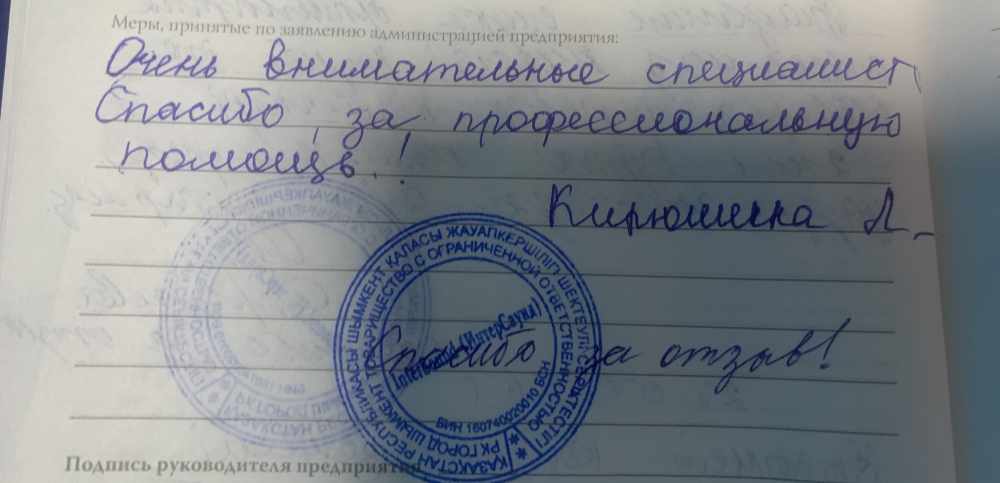 Меры, принятые по заявлению администрацией предприятия:
Очень внимательные специалист
Спасибо, за, профессиональную
помощь!
Кирюшина Л_
Спасибо за отзыв!
ҚАЗАҚСТАН РЕСПУБЛИКАСЫ ШЫМКЕНТ ҚАЛАСЫ ЖАУАПКЕРШІЛІГІ ШЕКТЕУЛІ СЕРІКТЕСТІГІ
РК ГОРОД ШЫМКЕНТ ТОВАРИЩЕСТВО С ОГРАНИЧЕННОЙ ОТВЕТСТВЕННОСТЬЮ
(ИнтерСауна)
БИН 160740020010 БСН
Подпись руководителя предприятия